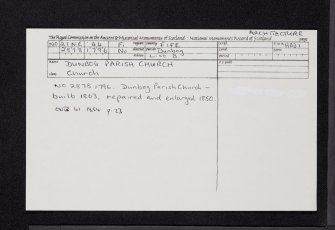 ARCHITECTURE
The Royal Commission on the Ancient & Historical Monuments of Scotland - National Monuments Record of Scotland
NO 21 NE 44 Fi FIFE
NO 2875 1796 No Dunbog
DUNBOG PARISH CHURCH
Church
NO 2875 1796. Dunbog Parish Church -
built 1803, repaired and enlarged 1850.
1854 p. 23